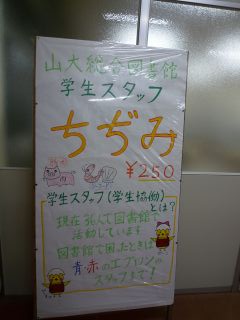 山大総合図書館
学生スタッフ
ちぢみ
¥250
学生スタッフ(学生協働)
とは?
現在36人で図書館で
活動しています
図書館で困ったときは
青・赤のエプロンの
スタッフまで!